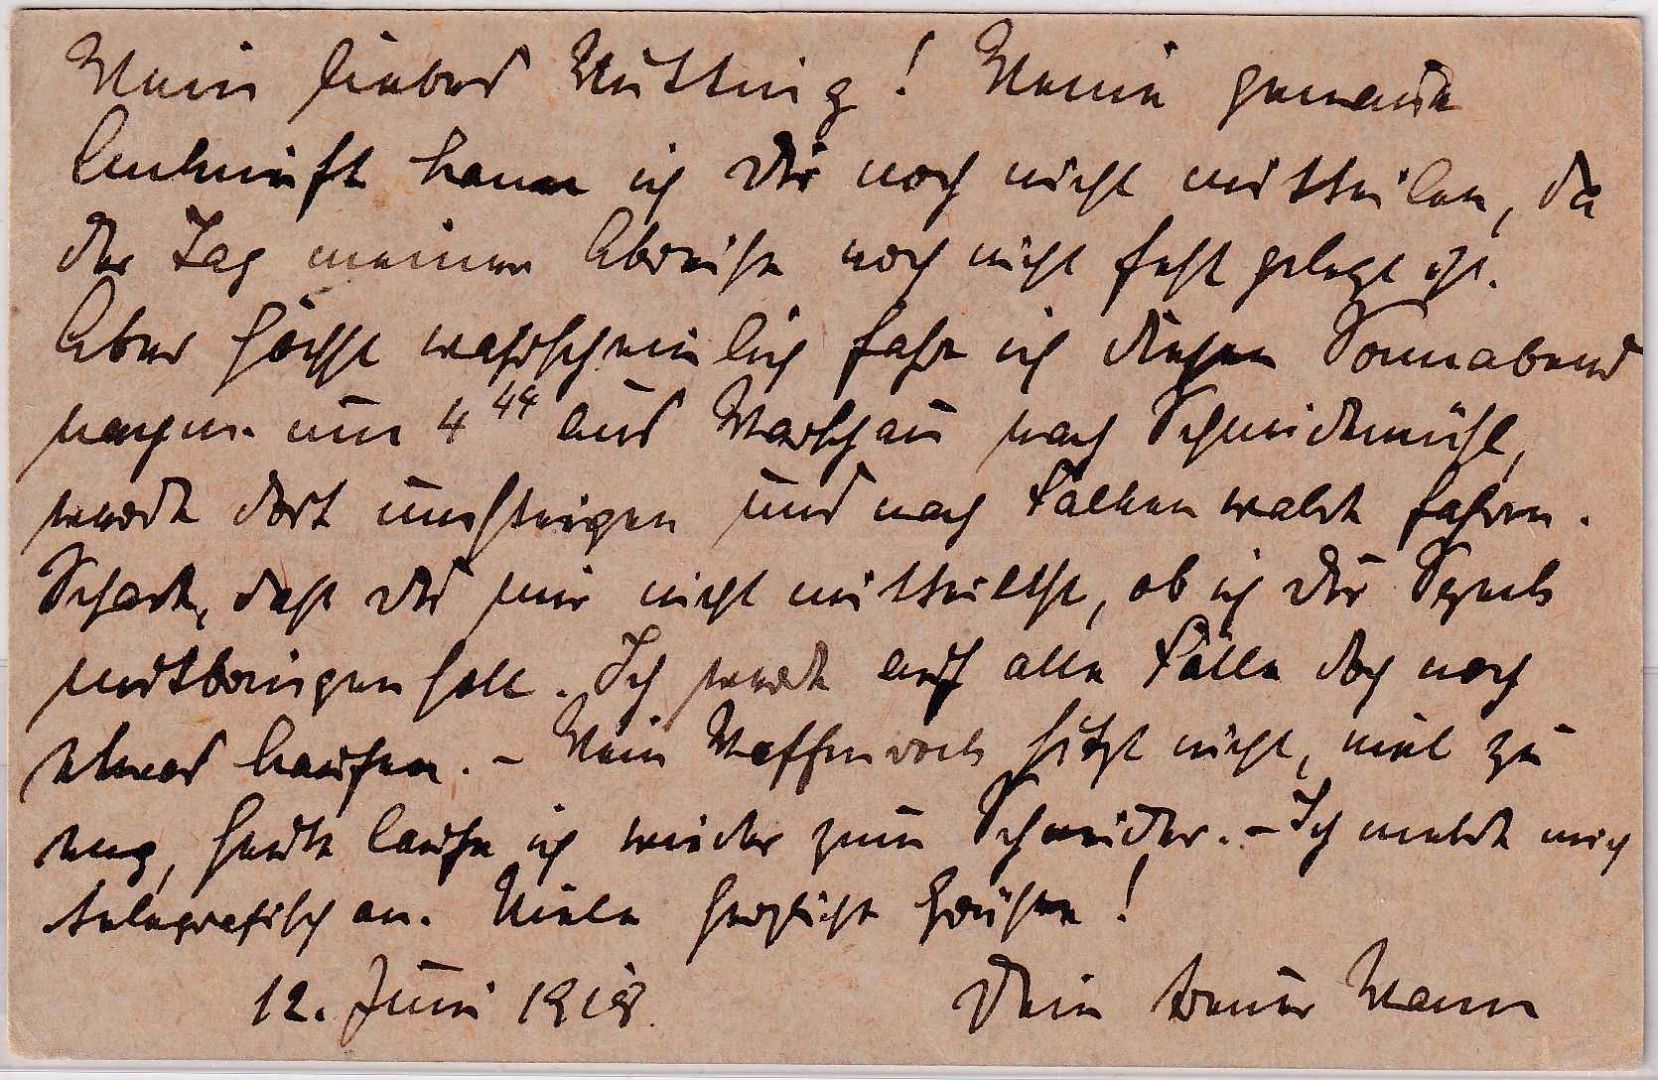 Mein liebes Mutting! Meine genaue
Ankunft kann ich Dir noch nicht mitteilen, da
der Tag meiner Abreise noch nicht festgelegt ist.
Aber höchst wahrscheinlich fahre ich diesen Sonnabend
nachm. um 4 44 aus Warschau nach Schneidemühl,
werde dort umsteigen und nach Falkenwalde fahren.
Schade, daß Du mir nicht mitteiltest, ob ich Dir Speck
mitbringen soll. Ich werde auf alle Fälle doch noch
etwas kaufen. – Mein Waffenrock sitzt nicht, viel zu
eng, heute laufe ich wieder zum Schneider. – Ich melde mich
telegrafisch an. Viele herzliche Grüße!
12. Juni 1918. Dein treuer Mann